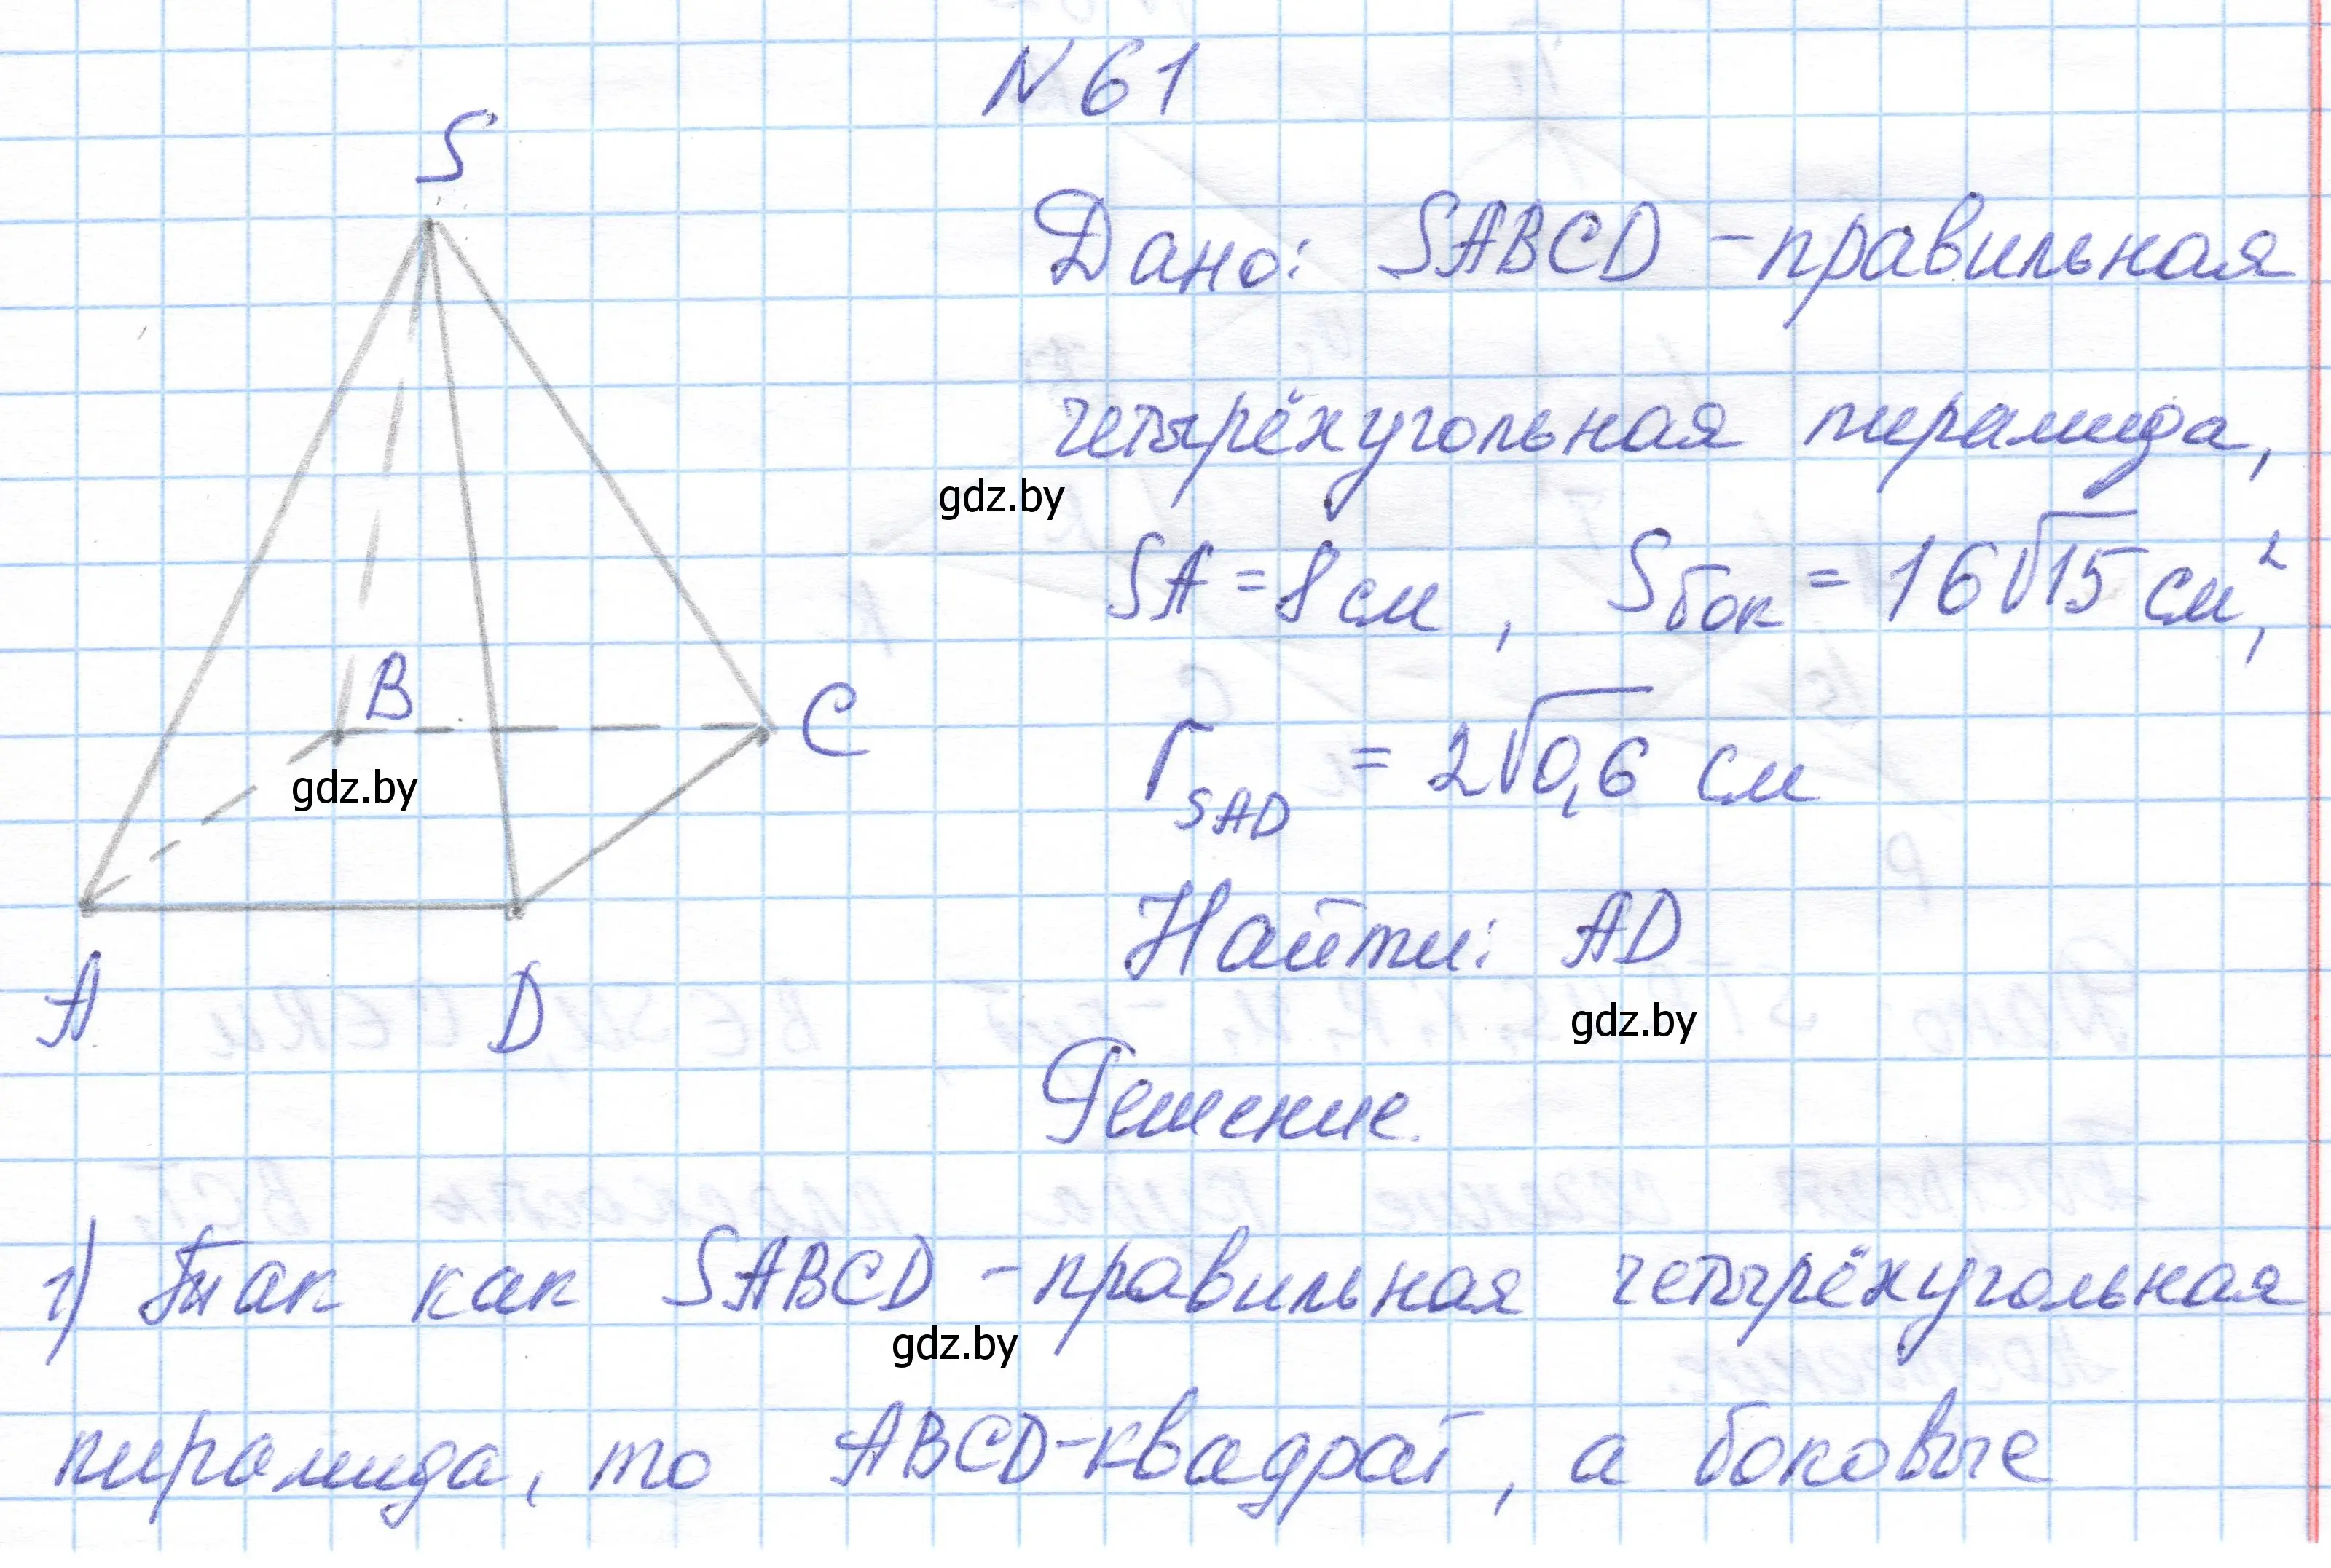 N 61
S
Дано: SABCD - правильная
четырёхугольная пирамида,
gdz.by
SA = 8 см, Sбок = 16√15 см²,
B
C
gdz.by
r SAD = 2√0,6 см
Найти: AD
A
D
gdz.by
Решение.
1) Так как SABCD - правильная четырёхугольная
gdz.by
пирамида, то ABCD - квадрат, а боковые